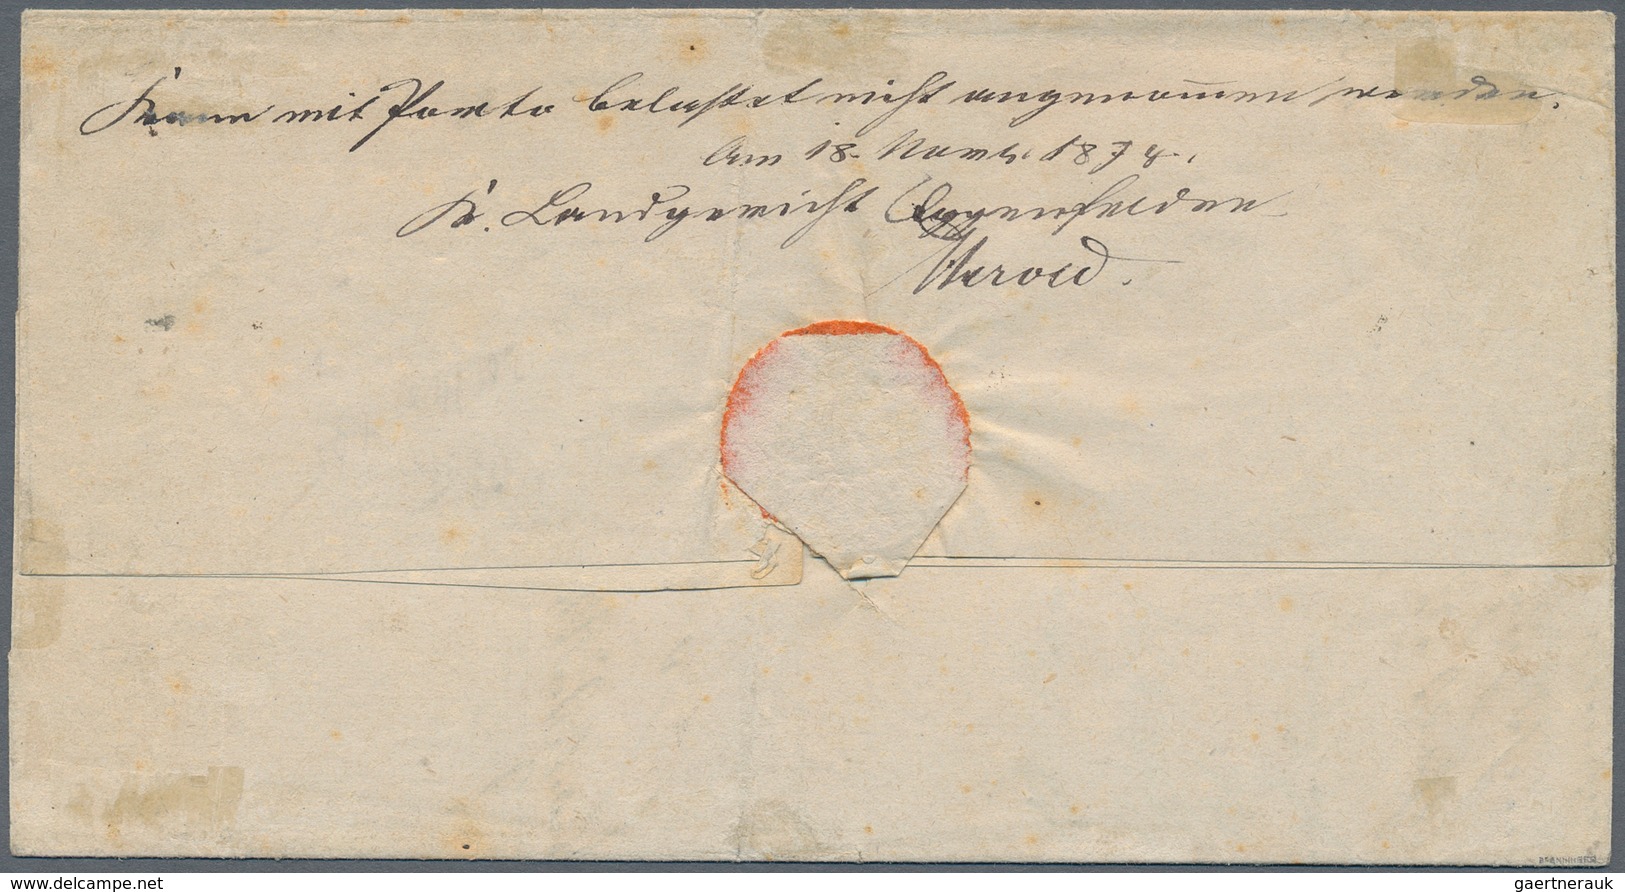 Kann mit Porto belastet nicht angenom̅en werden.
Am 18. Novbr. 1874.
K. Landgericht Eggenfelden
Herold.
BRANNHIER
delcampe.net
gaertnerauk